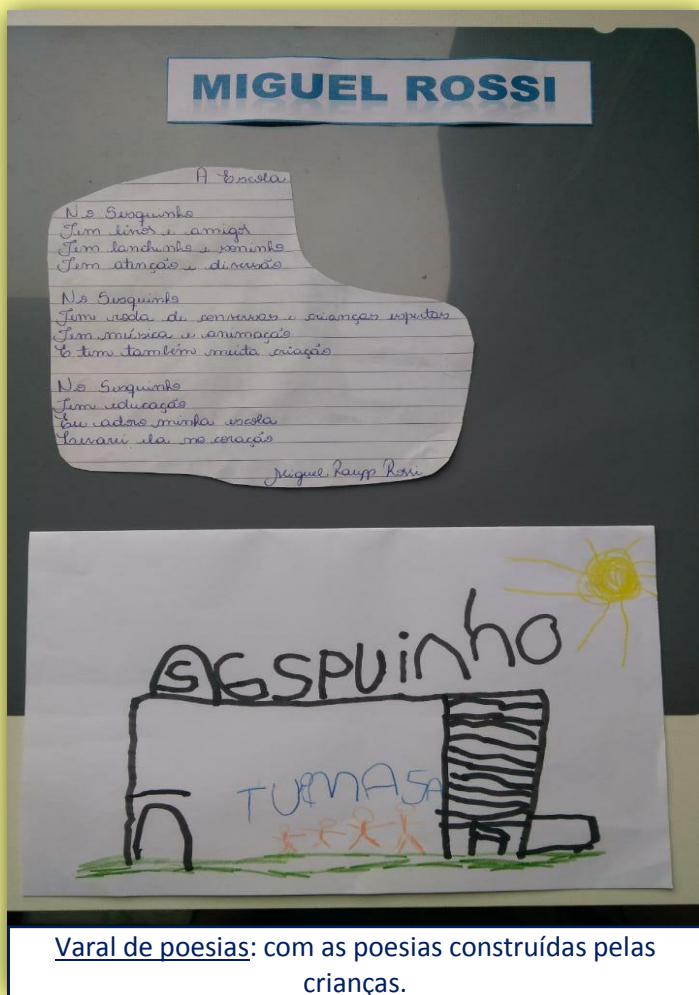 MIGUEL ROSSI
A Escola
No Sesquinho
Tem livros e amigos
Tem lanchinho e soninho
Tem atenção e diversão
No Sesquinho
Tem roda de conversas e crianças espertas
Tem música e animação
E tem também muita criação
No Sesquinho
Tem educação
Eu adoro minha escola
Levarei ela no coração
Miguel Raupp Rossi
S GSPUinho
TURMA 5A
Varal de poesias: com as poesias construídas pelas
crianças.